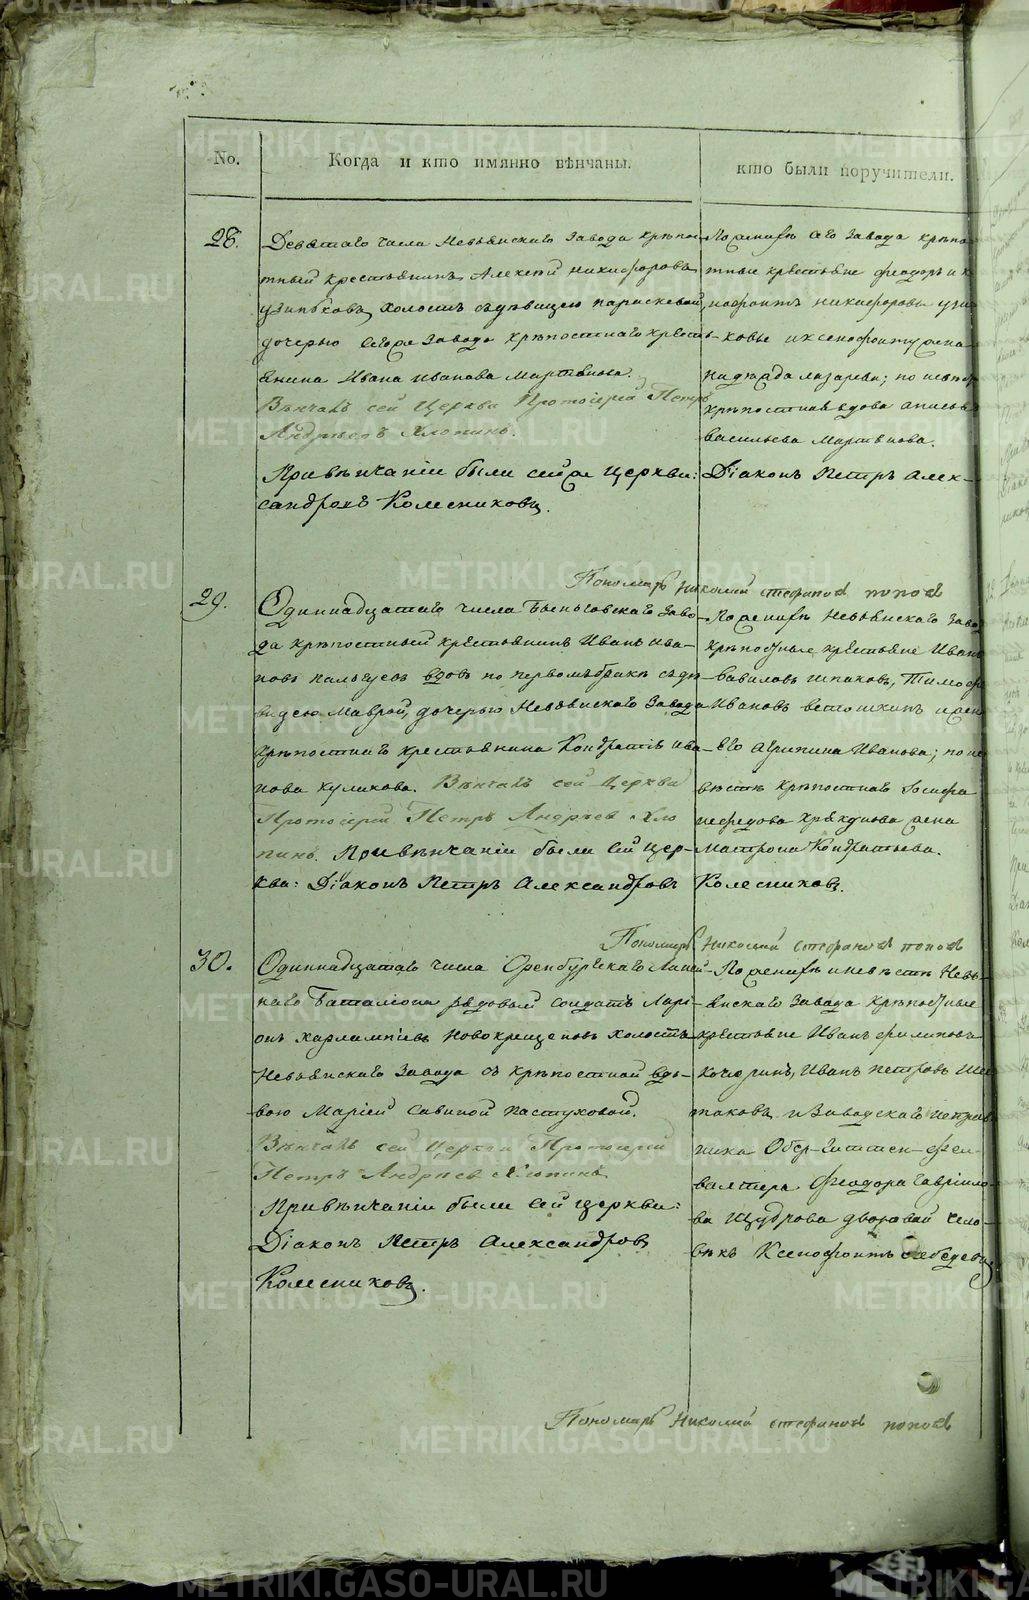 No.
Когда и кто имянно вѣнчаны.
кто были поручители.
28.
Девятаго числа Невьянскаго Завода крѣпос-
тный крестьянинъ Алексѣй Никифоровъ
холостъ съ дѣвицею Параскевой,
дочерью сегоже Завода крѣпостнаго кресть-
янина Ивана Иванова Мартьянова.
Вѣнчалъ сей Церкви Протоіерей Петръ
Андреевъ Хлопинъ.
Привѣнчаніи были сейже церкви:
сандровъ Колесниковъ.
По женихѣ сего Завода крѣпо-
тные крестьяне Феодоръ и К
нофонтъ Никифоровы
ковы и Ксенофонту жена
Надежда Лазарева; по невѣс
крѣпостная вдова Анисья
Васильева Мартьянова.
Діаконъ Петръ Алек-
Пономарь Николай Стефановъ Поповъ
29.
Одиннадцатаго числа Быньговскаго Заво-
да крѣпостный крестьянинъ Иванъ Ива-
новъ Пальцевъ вдовъ по первомъ бракѣ съ дѣ-
вицею Маврой, дочерью Невьянскаго Завода
крѣпостнаго крестьянина Кондратія Ива-
нова Куликова. Вѣнчалъ сей Церкви
Протоіерей Петръ Андреевъ Хло
пинъ. Привѣнчаніи были сей цер-
кви: Діаконъ Петръ Александровъ
По женихѣ Невьянскаго Заво
крѣпостные крестьяне Иванъ
Вавиловъ Шпаковъ, Тимофе
Ивановъ Ветошкинъ и жен
его Агрипина Иванова; по не
вѣстѣ крѣпостнаго Іосифа
Нефедова жена
Матрона Кондратьева.
Колесниковъ.
Пономарь Николай Стефановъ Поповъ
30.
Одиннадцатаго числа Оренбургскаго Линей-
наго Баталіона рядовый солдатъ Лари-
онъ Харлампіевъ Новокрещеновъ холостъ
Невьянскаго Завода съ крѣпостной вдо-
вою Маріей Савиной Пастуховой.
Вѣнчалъ сей Церкви Протоіерей
Петръ Андреевъ Хлопинъ
Привѣнчаніи были сей церкви:
Діаконъ Петръ Александровъ
Колесниковъ.
По женихѣ и невѣстѣ Невь-
янскаго Завода крѣпостные
крестьяне Иванъ Филиповъ
Кочюринъ, Иванъ Петровъ
и Заводскаго Исправ
ника Обер-Гиттен-Фер-
валтера Феодора Гаврило-
ва Щудрова дворовой чело-
вѣкъ Ксенофонтъ Лебедевъ
Пономарь Николай Стефановъ Поповъ
METRIKI.GASO-URAL.RU